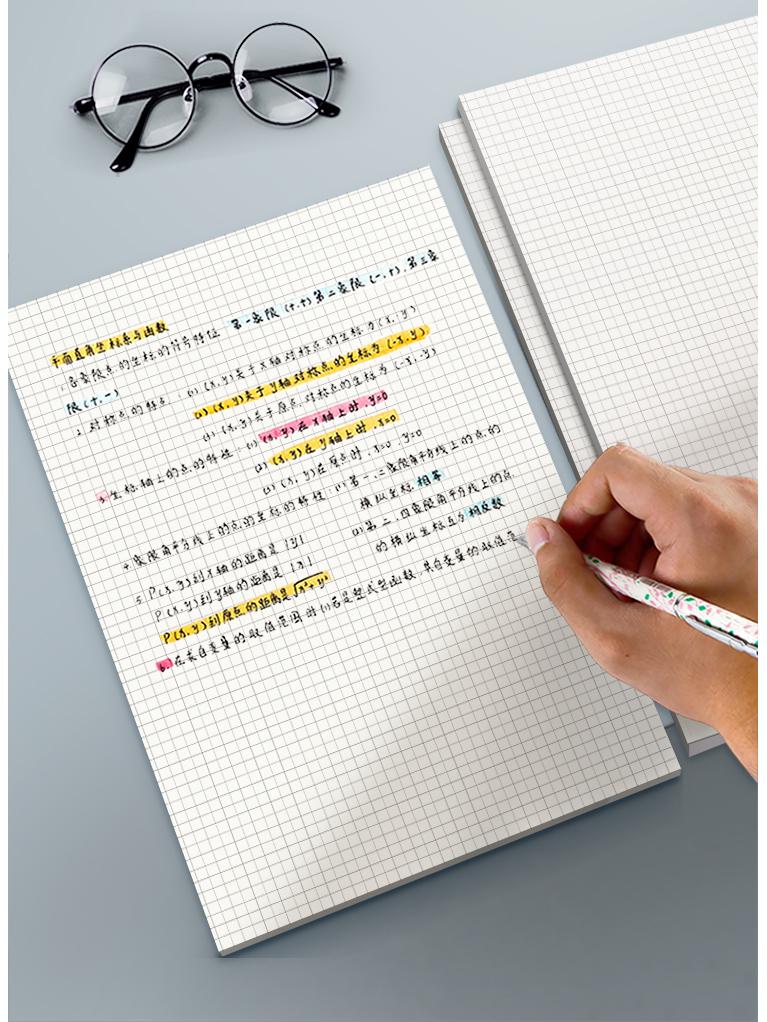 平面直角坐标系与函数
1.各象限点的坐标的符号特征 第一象限(+,+)第二象限(-,+),第三象
限(+,-)
2.对称点的特点:(1)(x,y)关于x轴对称点的坐标为(x,-y)
(2)(x,y)关于y轴对称点的坐标为(-x,y)
(3)(x,y)关于原点对称点的坐标为(-x,-y)
3.坐标轴上的点的特征:(1)(x,y)在x轴上时,y=0
(2)(x,y)在y轴上时,x=0
(3)(x,y)在原点时,x=0,y=0
4.象限角平分线上的点的坐标的特征:(1)第一、三象限角平分线上的点的
横纵坐标相等
(2)第二、四象限角平分线上的点
的横纵坐标互为相反数
5.P(x,y)到x轴的距离是|y|
P(x,y)到y轴的距离是|x|
P(x,y)到原点的距离是√x²+y²
6.在求自变量的取值范围时(1)若是整式型函数,其自变量的取值范